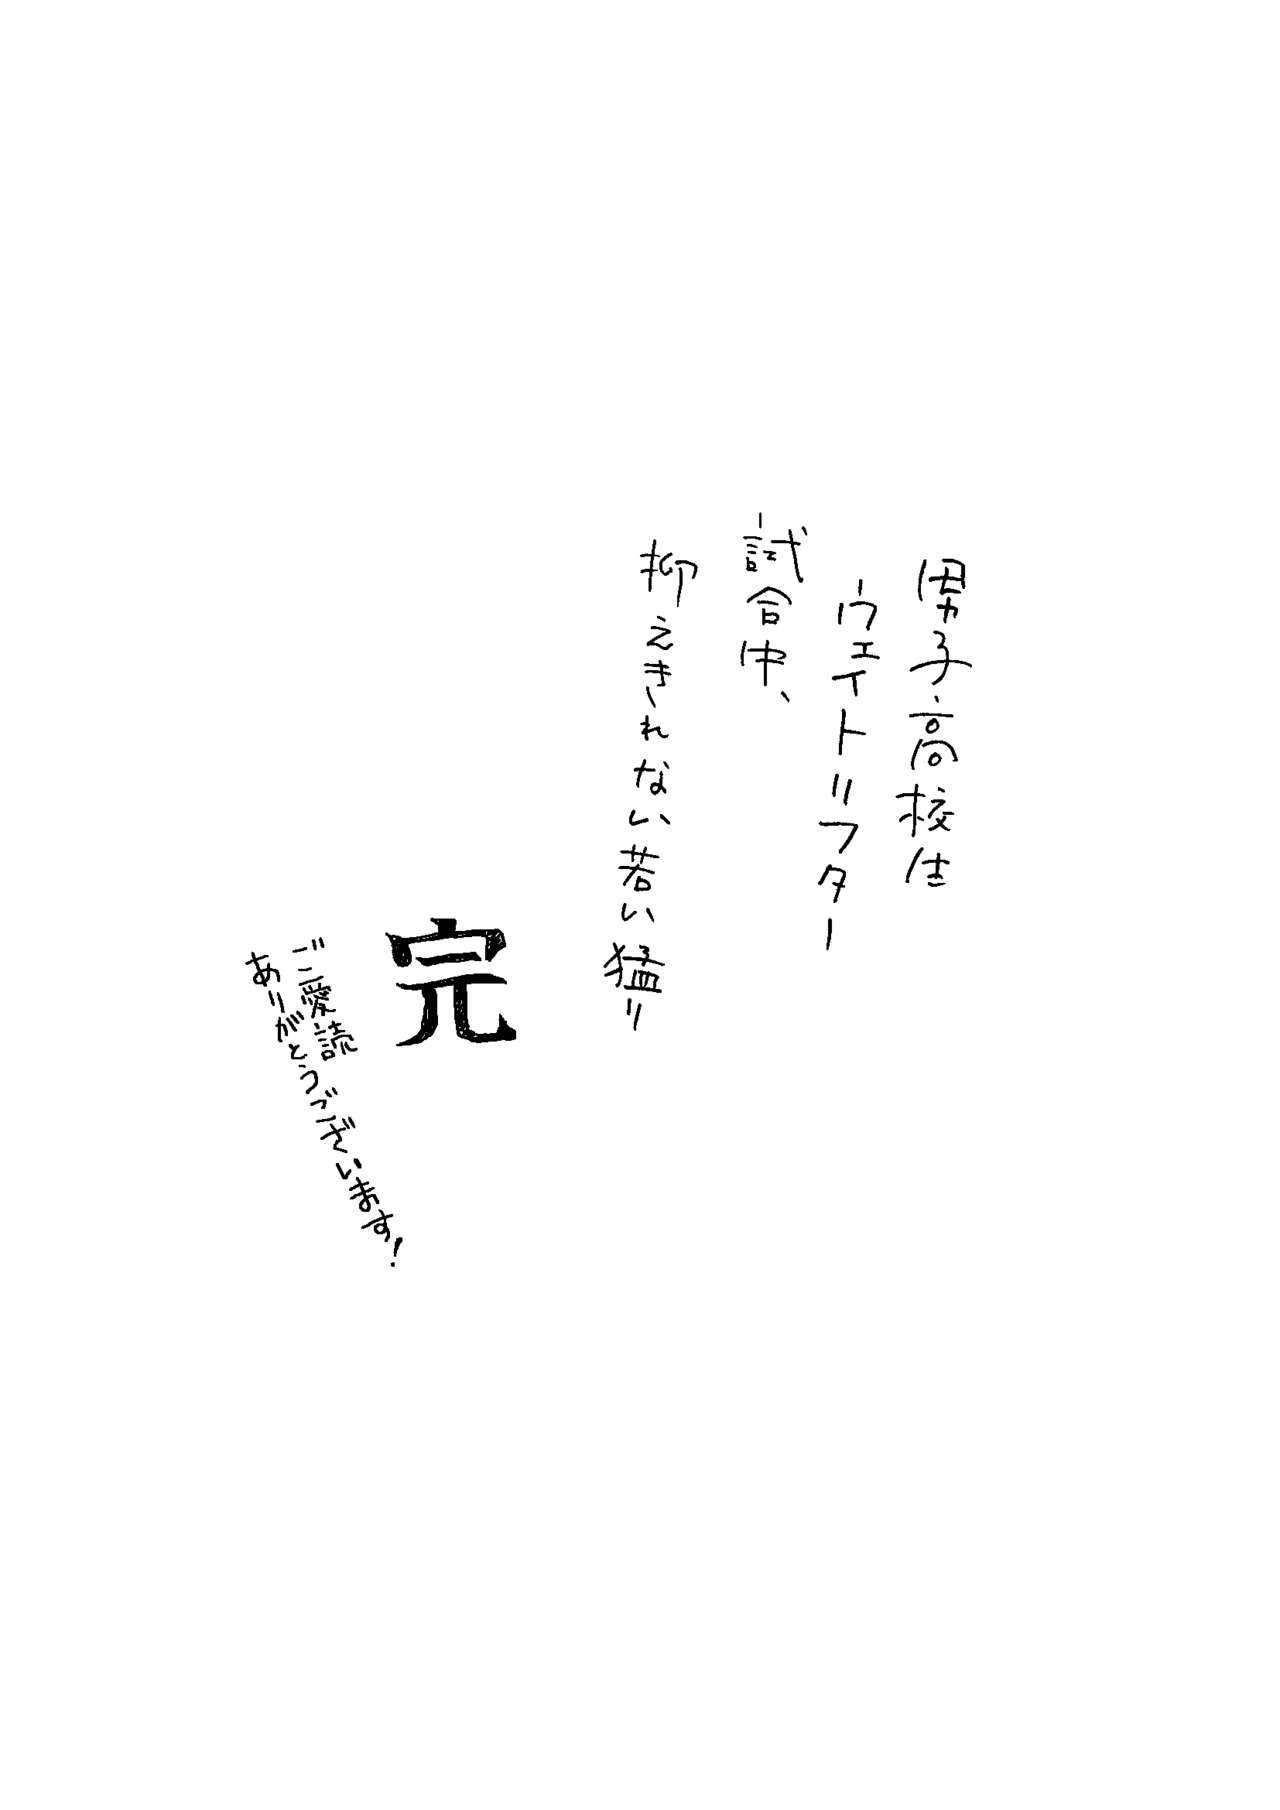 男子高校生
ウェイトリフター
試合中、
抑えきれない若い猛り
完
ご愛読
ありがとうございます!